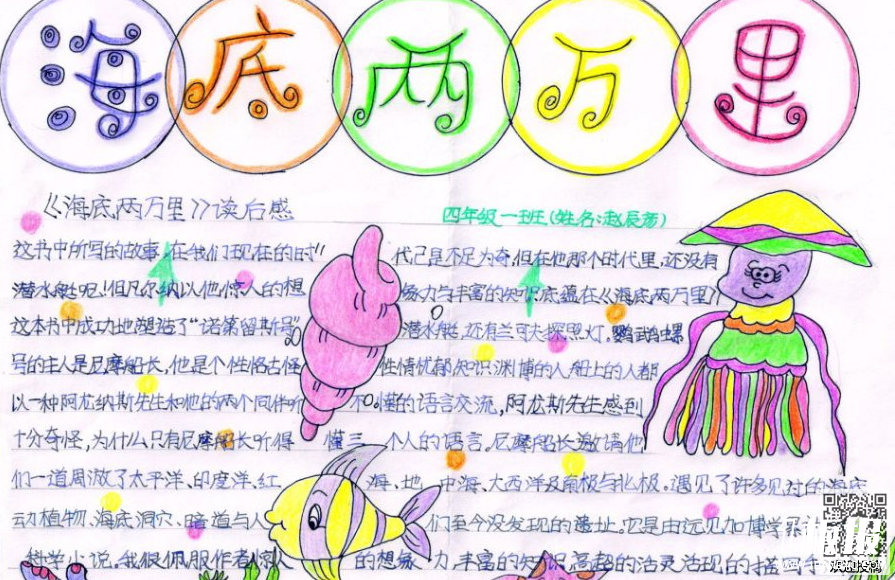 海底两万里
《海底两万里》读后感
四年级一班(姓名:赵辰荡)
这书中所写的故事,在我们现在的时代已是不足为奇,但在他那个时代里,还没有
潜水艇呢!但凡尔纳以他惊人的想象力与丰富的知识底蕴在《海底两万里》
这本书中成功地塑造了"诺第留斯号"潜水艇,还有兰可夫探照灯.鹦鹉螺
号的主人是尼摩船长,他是个性格古怪性情忧郁知识渊博的人,船上的人都
以一种阿尤纳斯先生和他的两个同伴听不懂的语言交流,阿尤斯先生感到
十分奇怪,为什么只有尼摩船长听得懂三个人的语言.尼摩船长邀请他
们一道周游了太平洋、印度洋、红海、地中海、大西洋及南极与北极.遇见了许多见
动植物、海底洞穴、暗道与人们至今没发现的遗址,它是由远见加博学
科学小说,我很佩服作者惊人的想象力,丰富的知识,高超的活灵活现的描